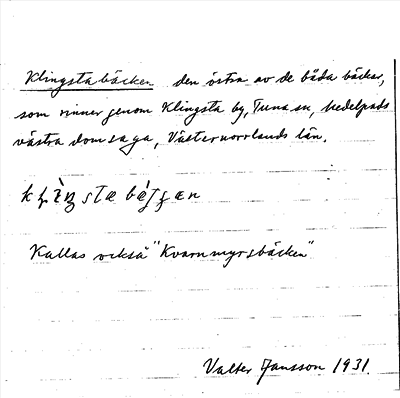 Klingstabäcken den östra av de båda bäckar,
som rinner genom Klingsta by, Tuna sn, Medelpads
västra domsaga, Västernorrlands län.
Kallas också "Kvarnmyrsbäcken"
Valter Jansson 1931